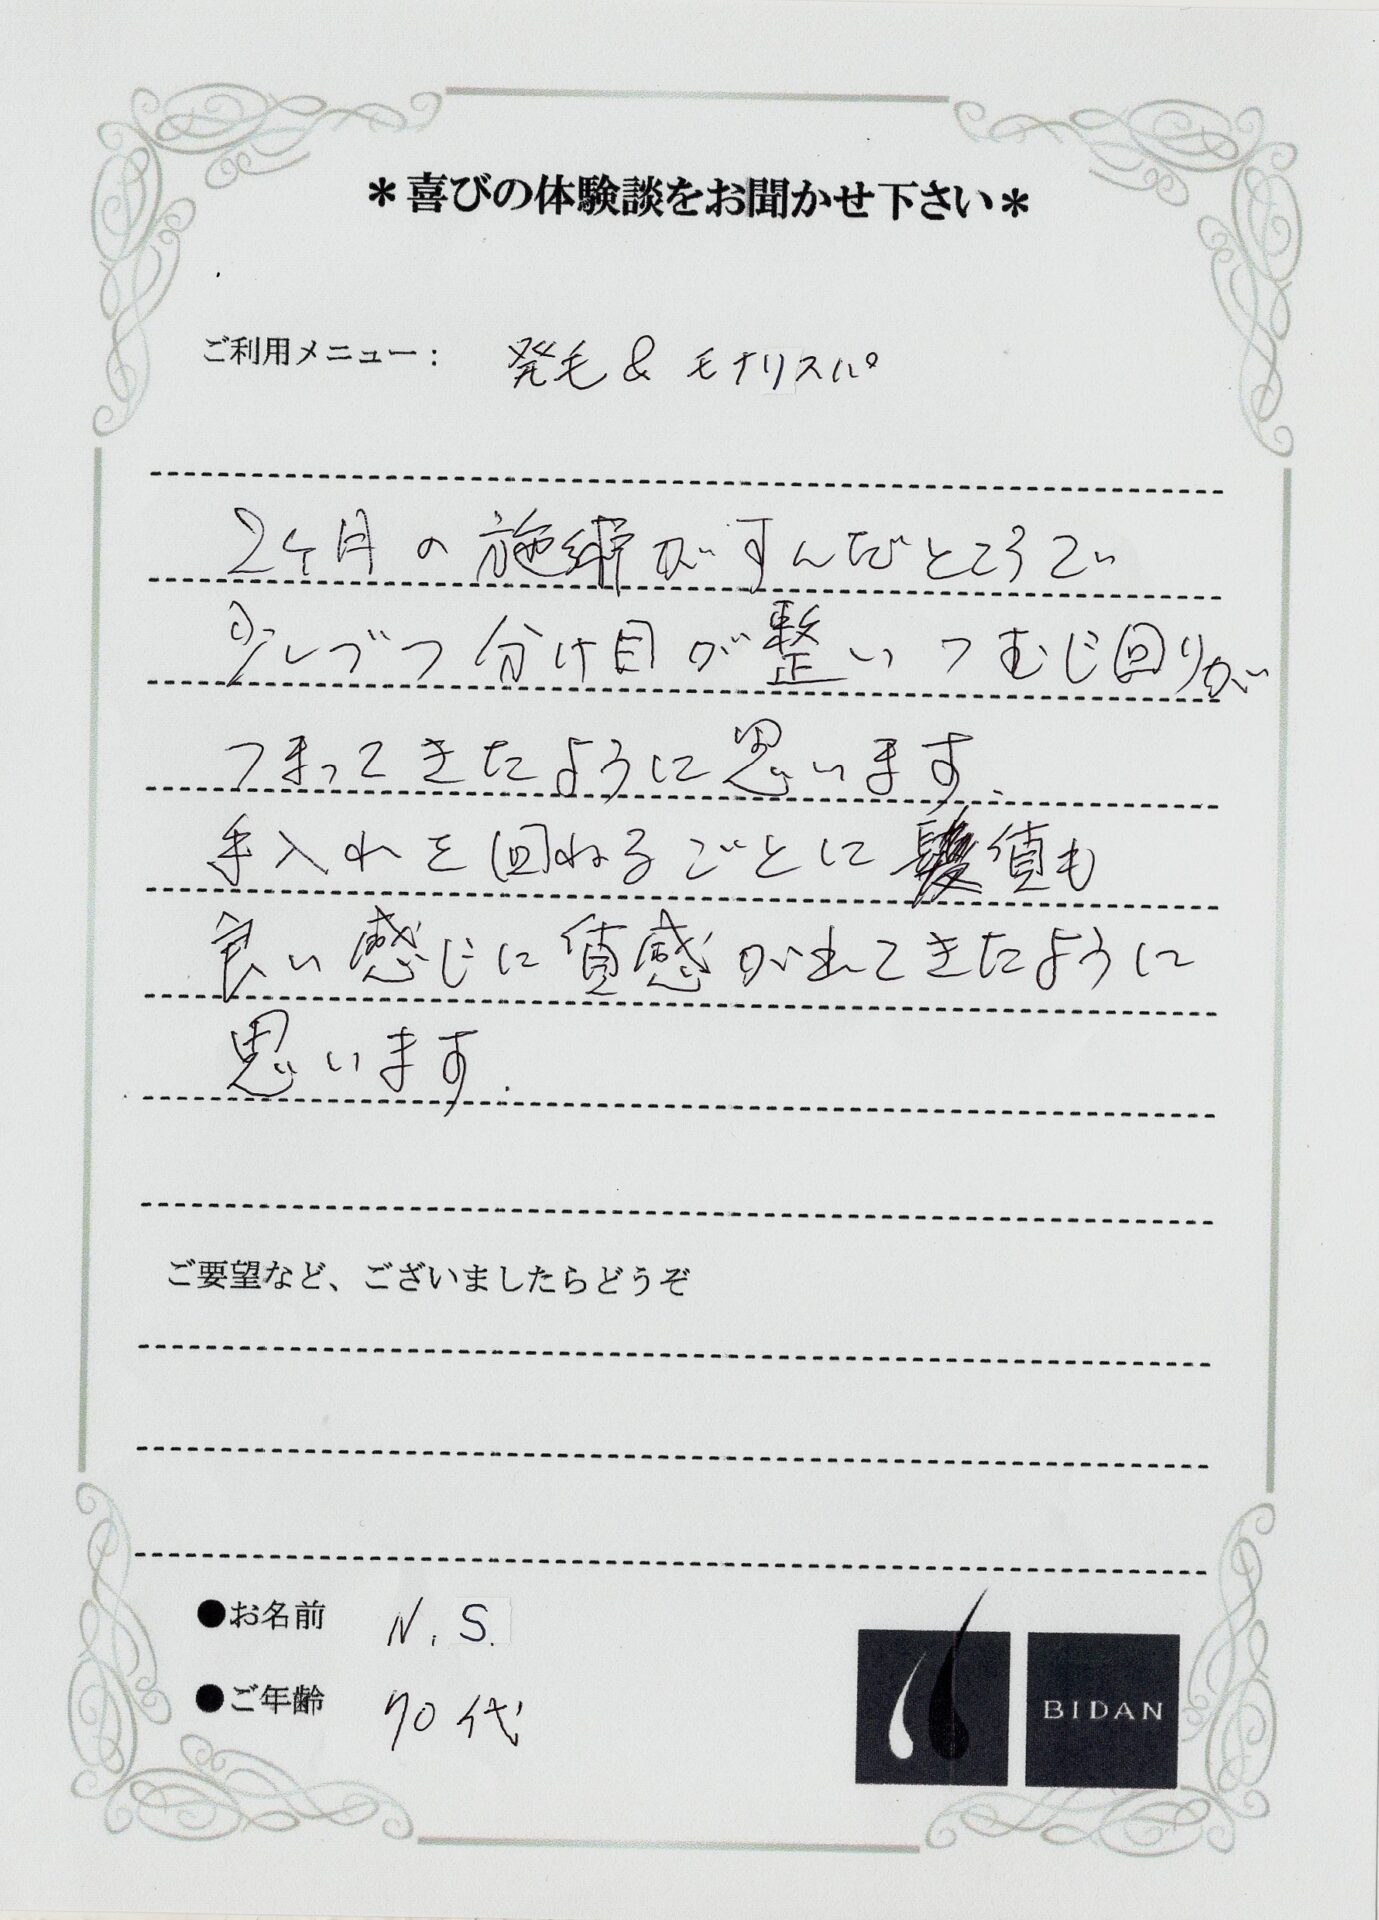 ＊喜びの体験談をお聞かせ下さい＊
ご利用メニュー： 発毛 & モナリスパ
2ケ月の施術がすんだところで
少しづつ分け目が整いつむじ回りが
つまってきたように思います、
手入れを回ねるごとに髪質も
良い感じに質感がれてきたように
思います.
ご要望など、ございましたらどうぞ
●お名前 N.S.
●ご年齢 70代
BIDAN